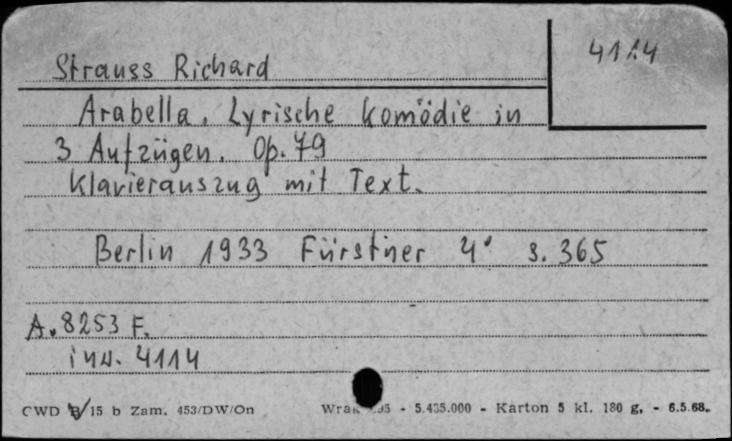 4114
Strauss Richard
Arabella. Lyrische Komödie in
3 Aufzügen. Op. 79
Klavierauszug mit Text.
Berlin 1933 Fürstner 4° s. 365
A. 8253 F.
inw. 4114
CWD B/15 b Zam. 453/DW/On - 5.435.000 - Karton 5 kl. 180 g. - 6.5.68.